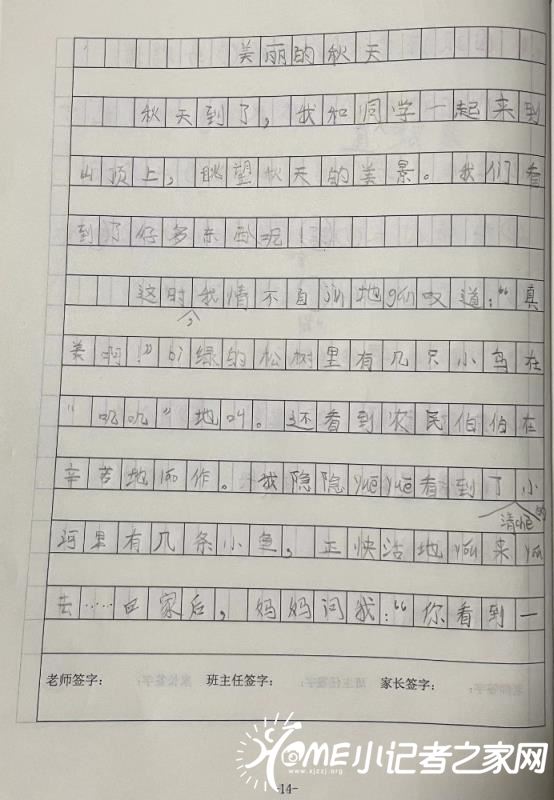 美丽的秋天
秋天到了，我和同学一起来到
山顶上，眺望秋天的美景。我们看
到了好多东西呢！
这时，我情不自jīn地gǎn叹道：“真
美啊！”bì绿的松树里有几只小鸟在
“叽叽”地叫。还看到农民伯伯在
辛苦地劳作。我隐隐yuēyuē看到了小
清chè的
河里有几条小鱼，正快活地yóu来yóu
去……回家后，妈妈问我：“你看到一
老师签字： 班主任签字： 家长签字：
HOME小记者之家网
www.xjzzj.org
-14-